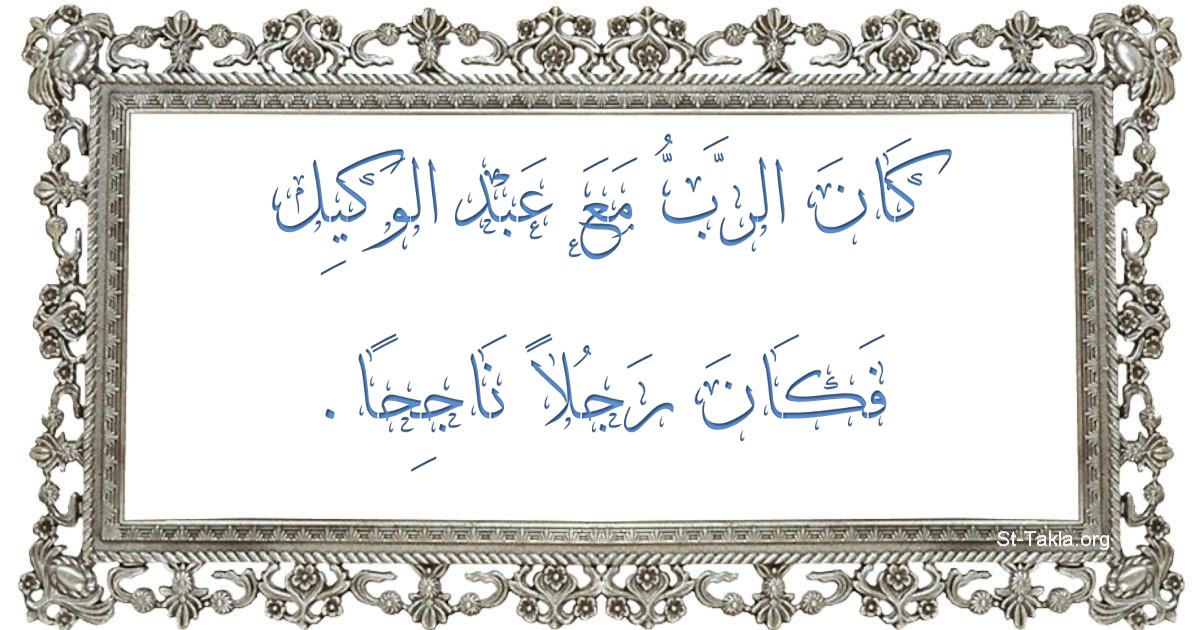 كَانَ الرَّبُّ مَعَ عَبْد الوَكَيِل
فَكَانَ رَجُلاً نَاجِحًا .
St-Takla.org